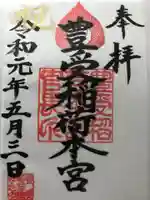 奉拝
豊受稲荷本宮
令和元年五月三日